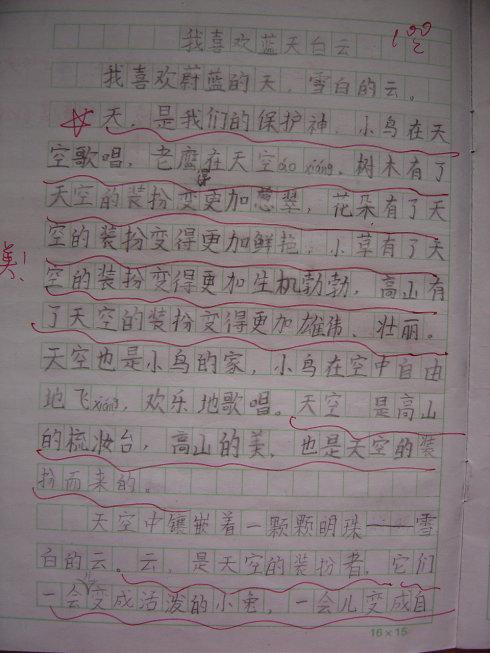 我喜欢蓝天白云
100
我喜欢蔚蓝的天,雪白的云。
天,是我们的保护神,小鸟在天
空歌唱,老鹰在天空áo xiáng,树木有了
得
天空的装扮变更加葱翠,花朵有了天
空的装扮变得更加鲜艳,小草有了天
美!
空的装扮变得更加生机勃勃,高山有
了天空的装扮变得更加雄伟、壮丽。
天空也是小鸟的家,小鸟在空中自由
地飞xiáng,欢乐地歌唱。天空 是高山
的梳妆台,高山的美,也是天空的装
扮而来的。
天空中镶嵌着一颗颗明珠——雪
白的云。云,是天空的装扮者,它们
儿
一会变成活泼的小兔,一会儿变成自
16×15